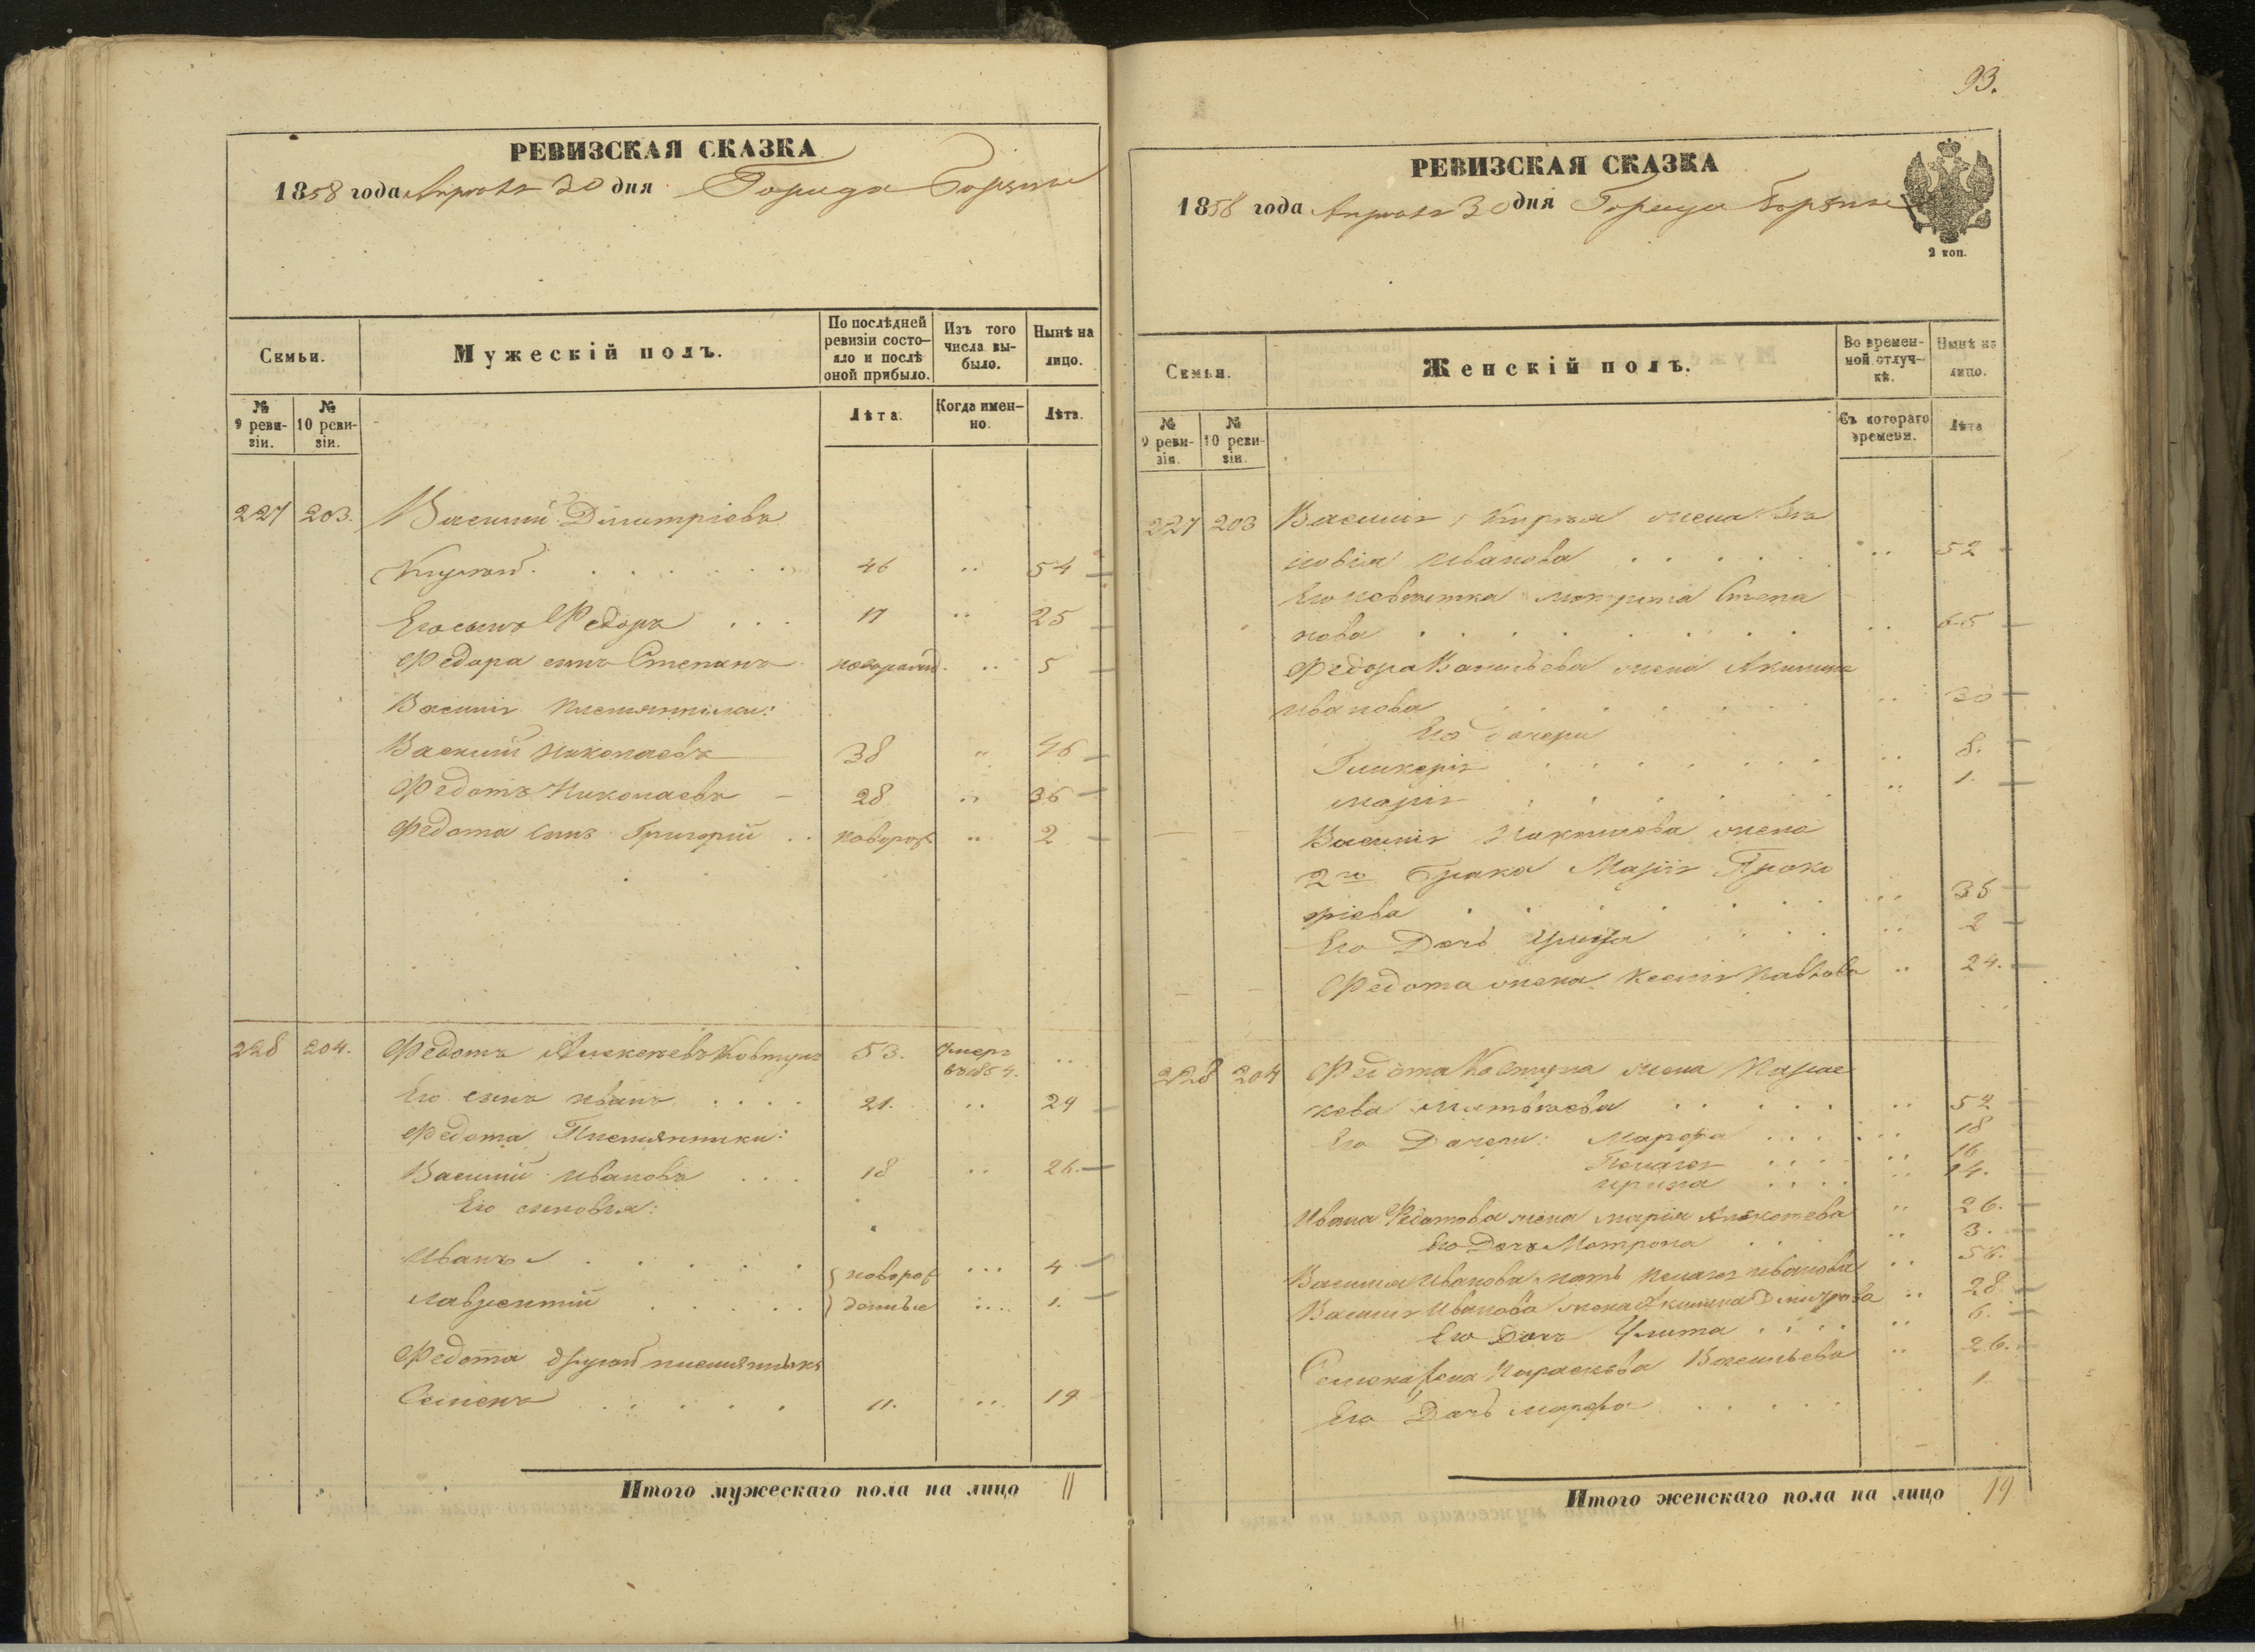 РЕВИЗСКАЯ СКАЗКА
1858 года Апреля 30 дня Города Борзны
Семьи.
Мужескій полъ.
По послѣдней ревизіи состояло и послѣ оной прибыло.
Изъ того числа выбыло.
Нынѣ на лицо.
№ 9 ревизіи.
№ 10 ревизіи.
Лѣта.
Когда именно.
Лѣта.
227 203. Василий Дмитріевъ
46 .. 54
Его сынъ Федоръ . . . 17 .. 25
Федора сынъ Степанъ новорожд. .. 5
Василія племянники:
Василий Николаевъ 38 .. 46
Федотъ Николаевъ - 28 .. 36
Федота сынъ Григорий . . новорож .. 2
228 204. Федотъ Алексеевъ Ковтунъ 53. умеръ въ 185 ..
Его сынъ Иванъ . . . . 21. .. 29
Федота Племянники:
Василий Ивановъ . . . . 18 .. 26.
Его сыновья:
Иванъ . . . . . новорож ... 4
Лаврентий . . . . . денные .... 1.
Федота другой племянникъ
Семенъ . . . . . 11. ... 19
Итого мужескаго пола на лицо 11
93.
РЕВИЗСКАЯ СКАЗКА
1858 года Апреля 30 дня Города Борзны
2 коп.
Семьи.
Женскій полъ.
Во временной отлучкѣ.
Нынѣ на лицо.
№ 9 ревизіи.
№ 10 ревизіи.
Съ котораго времени.
Лѣта
227 203 Василия жена
Иванова . . . . . .. 52
Его невѣстка Степа
нова . . . . . . . .. 65
Федора Васильева жена Акилина
Иванова . . . . . . .. 30
Его дочери
Гликерія . . . . . . . .. 8.
Марія . . . . . . .. 1.
Василия Николаева жена
2го брака Марія Проко
фіева . . . . . . ... 35
Его Дочь . . . . .. 2
Федота жена Ксенія Павлова .. 24.
228 204 Федота Ковтуна жена Парас
кева Матвѣева . . . . . .. 52
Его Дочери: Марфа . . . ... 18
Пелагея . . . . .. 16
Ирина . . . . .. 14.
Ивана Федотова жена Марія Алексеева .. 26.
Его Дочь Матрона . . .. 3.
Василия Иванова мать Пелагея Иванова .. 56.
Василия Иванова жена Акилина Дмитрова .. 28.
Его Дочь Улита . . . . .. 6.
Семена жена Параскева Васильева .. 26.
Его Дочь Марфа . . . . . .. 1.
Итого женскаго пола на лицо 19